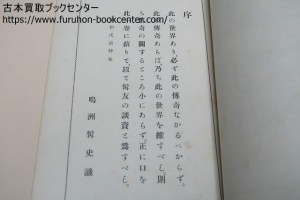 古本買取ブックセンター
https://www.furuhon-bookcenter.com/
序
此の世界あり、必ず此の傳奇なかるべからず。
此の傳奇あらば、乃ち此の世界を維すべし。則
ち奇の關するところ小にあらず。正に口を
此の卷に藉りて、以て匋友の談資と爲すべし。
鳴洲匋史識